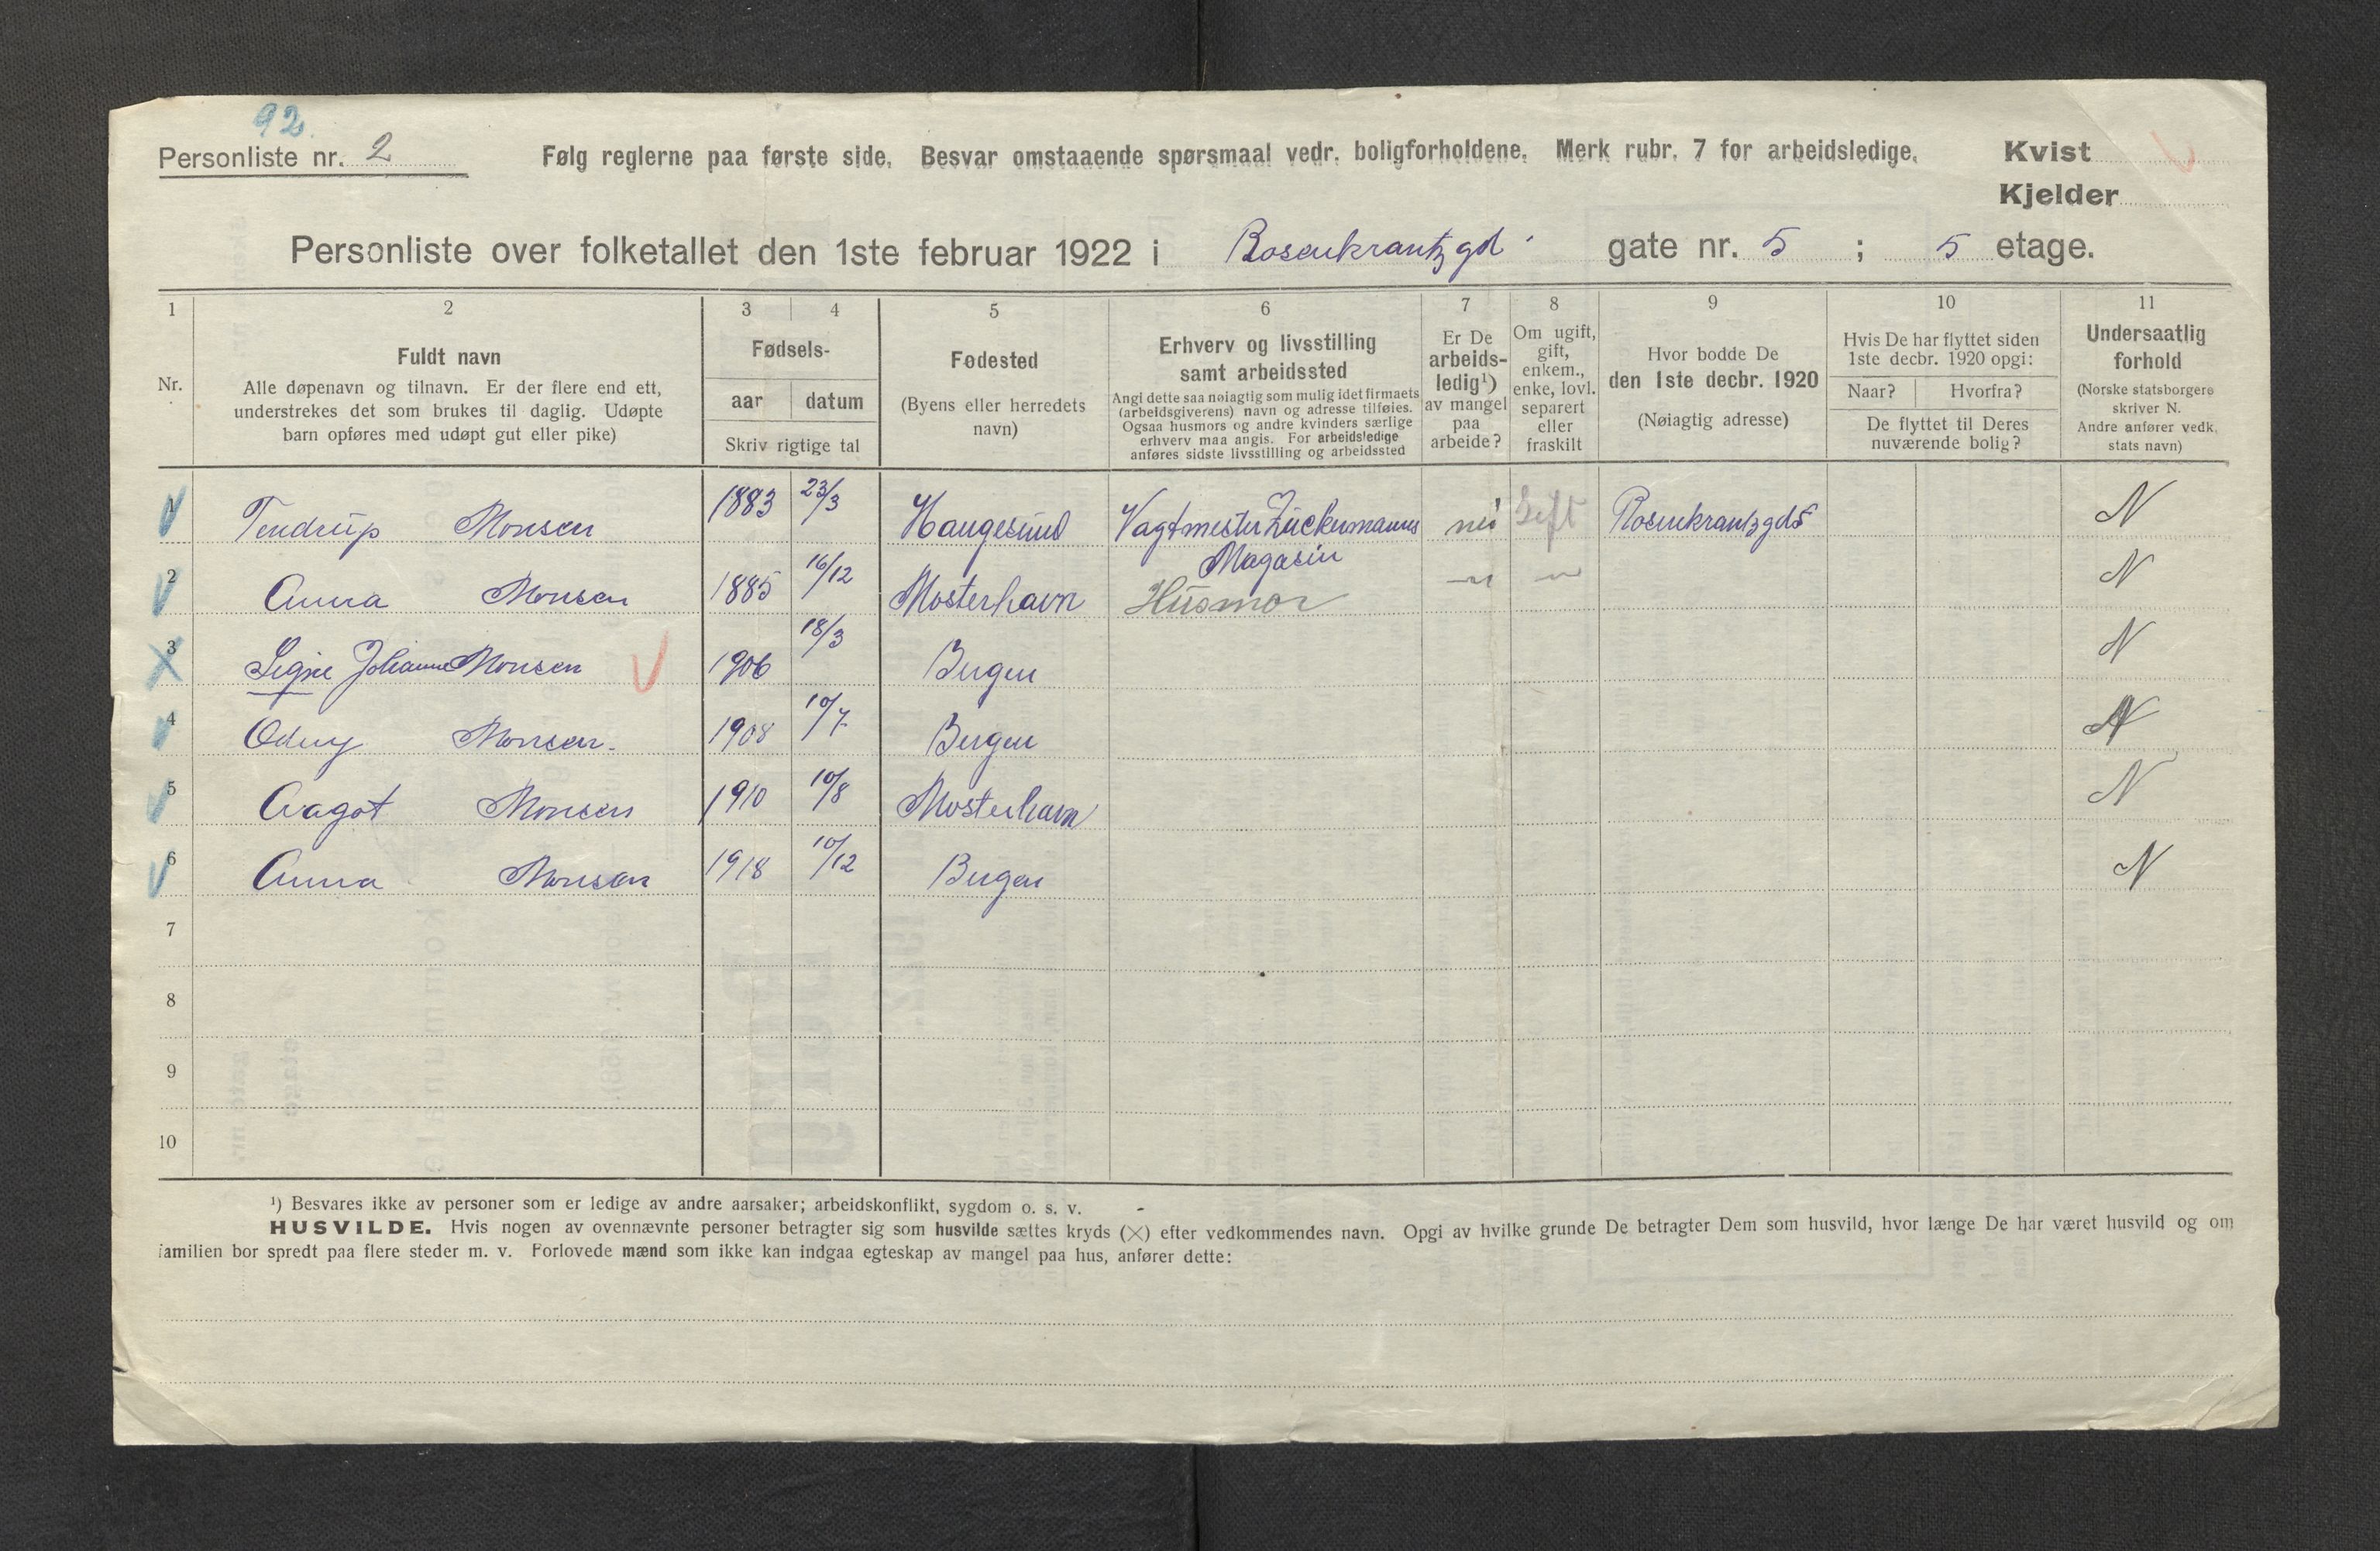 92.
Personliste nr. 2 Følg reglerne paa første side. Besvar omstaaende spørsmaal vedr. boligforholdene. Merk rubr. 7 for arbeidsledige. Kvist
Kjelder
Personliste over folketallet den 1ste februar 1922 i Rosenkrantzgd. gate nr. 5 ; 5 etage.
1 2 3 4 5 6 7 8 9 10 11
Nr.
Fuldt navn
Alle døpenavn og tilnavn. Er der flere end ett,
understrekes det som brukes til daglig. Udøpte
barn opføres med udøpt gut eller pike)
Fødsels-
aar datum
Skriv rigtige tal
Fødested
(Byens eller herredets
navn)
Erhverv og livsstilling
samt arbeidssted
Angi dette saa nøiagtig som mulig idet firmaets
(arbeidsgiverens) navn og adresse tilføies.
Ogsaa husmors og andre kvinders særlige
erhverv maa angis. For arbeidsledige
anføres sidste livsstilling og arbeidssted
Er De
arbeids-
ledig¹)
av mangel
paa
arbeide?
Om ugift,
gift,
enkem.,
enke, lovl.
separert
eller
fraskilt
Hvor bodde De
den 1ste decbr. 1920
(Nøiagtig adresse)
Hvis De har flyttet siden
1ste decbr. 1920 opgi:
Naar? Hvorfra?
De flyttet til Deres
nuværende bolig?
Undersaatlig
forhold
(Norske statsborgere
skriver N.
Andre anfører vedk.
stats navn)
1 Tendrup Monsen 1883 23/3 Haugesund Vagtmester Zückermanns nei Gift Rosenkrantzgd 5 N
Magasin
2 Anna Monsen 1885 16/12 Mosterhavn Husmor — " — N
3 Signe Johanne Monsen 1906 18/3 Bergen N
4 Odny Monsen. 1908 10/7 Bergen N
5 Aagot Monsen 1910 10/8 Mosterhavn N
6 Anna Monsen 1918 10/12 Bergen N
7
8
9
10
¹) Besvares ikke av personer som er ledige av andre aarsaker; arbeidskonflikt, sygdom o. s. v.
HUSVILDE. Hvis nogen av ovennævnte personer betragter sig som husvilde sættes kryds (×) efter vedkommendes navn. Opgi av hvilke grunde De betragter Dem som husvild, hvor længe De har været husvild og om
familien bor spredt paa flere steder m. v. Forlovede mænd som ikke kan indgaa egteskap av mangel paa hus, anfører dette: